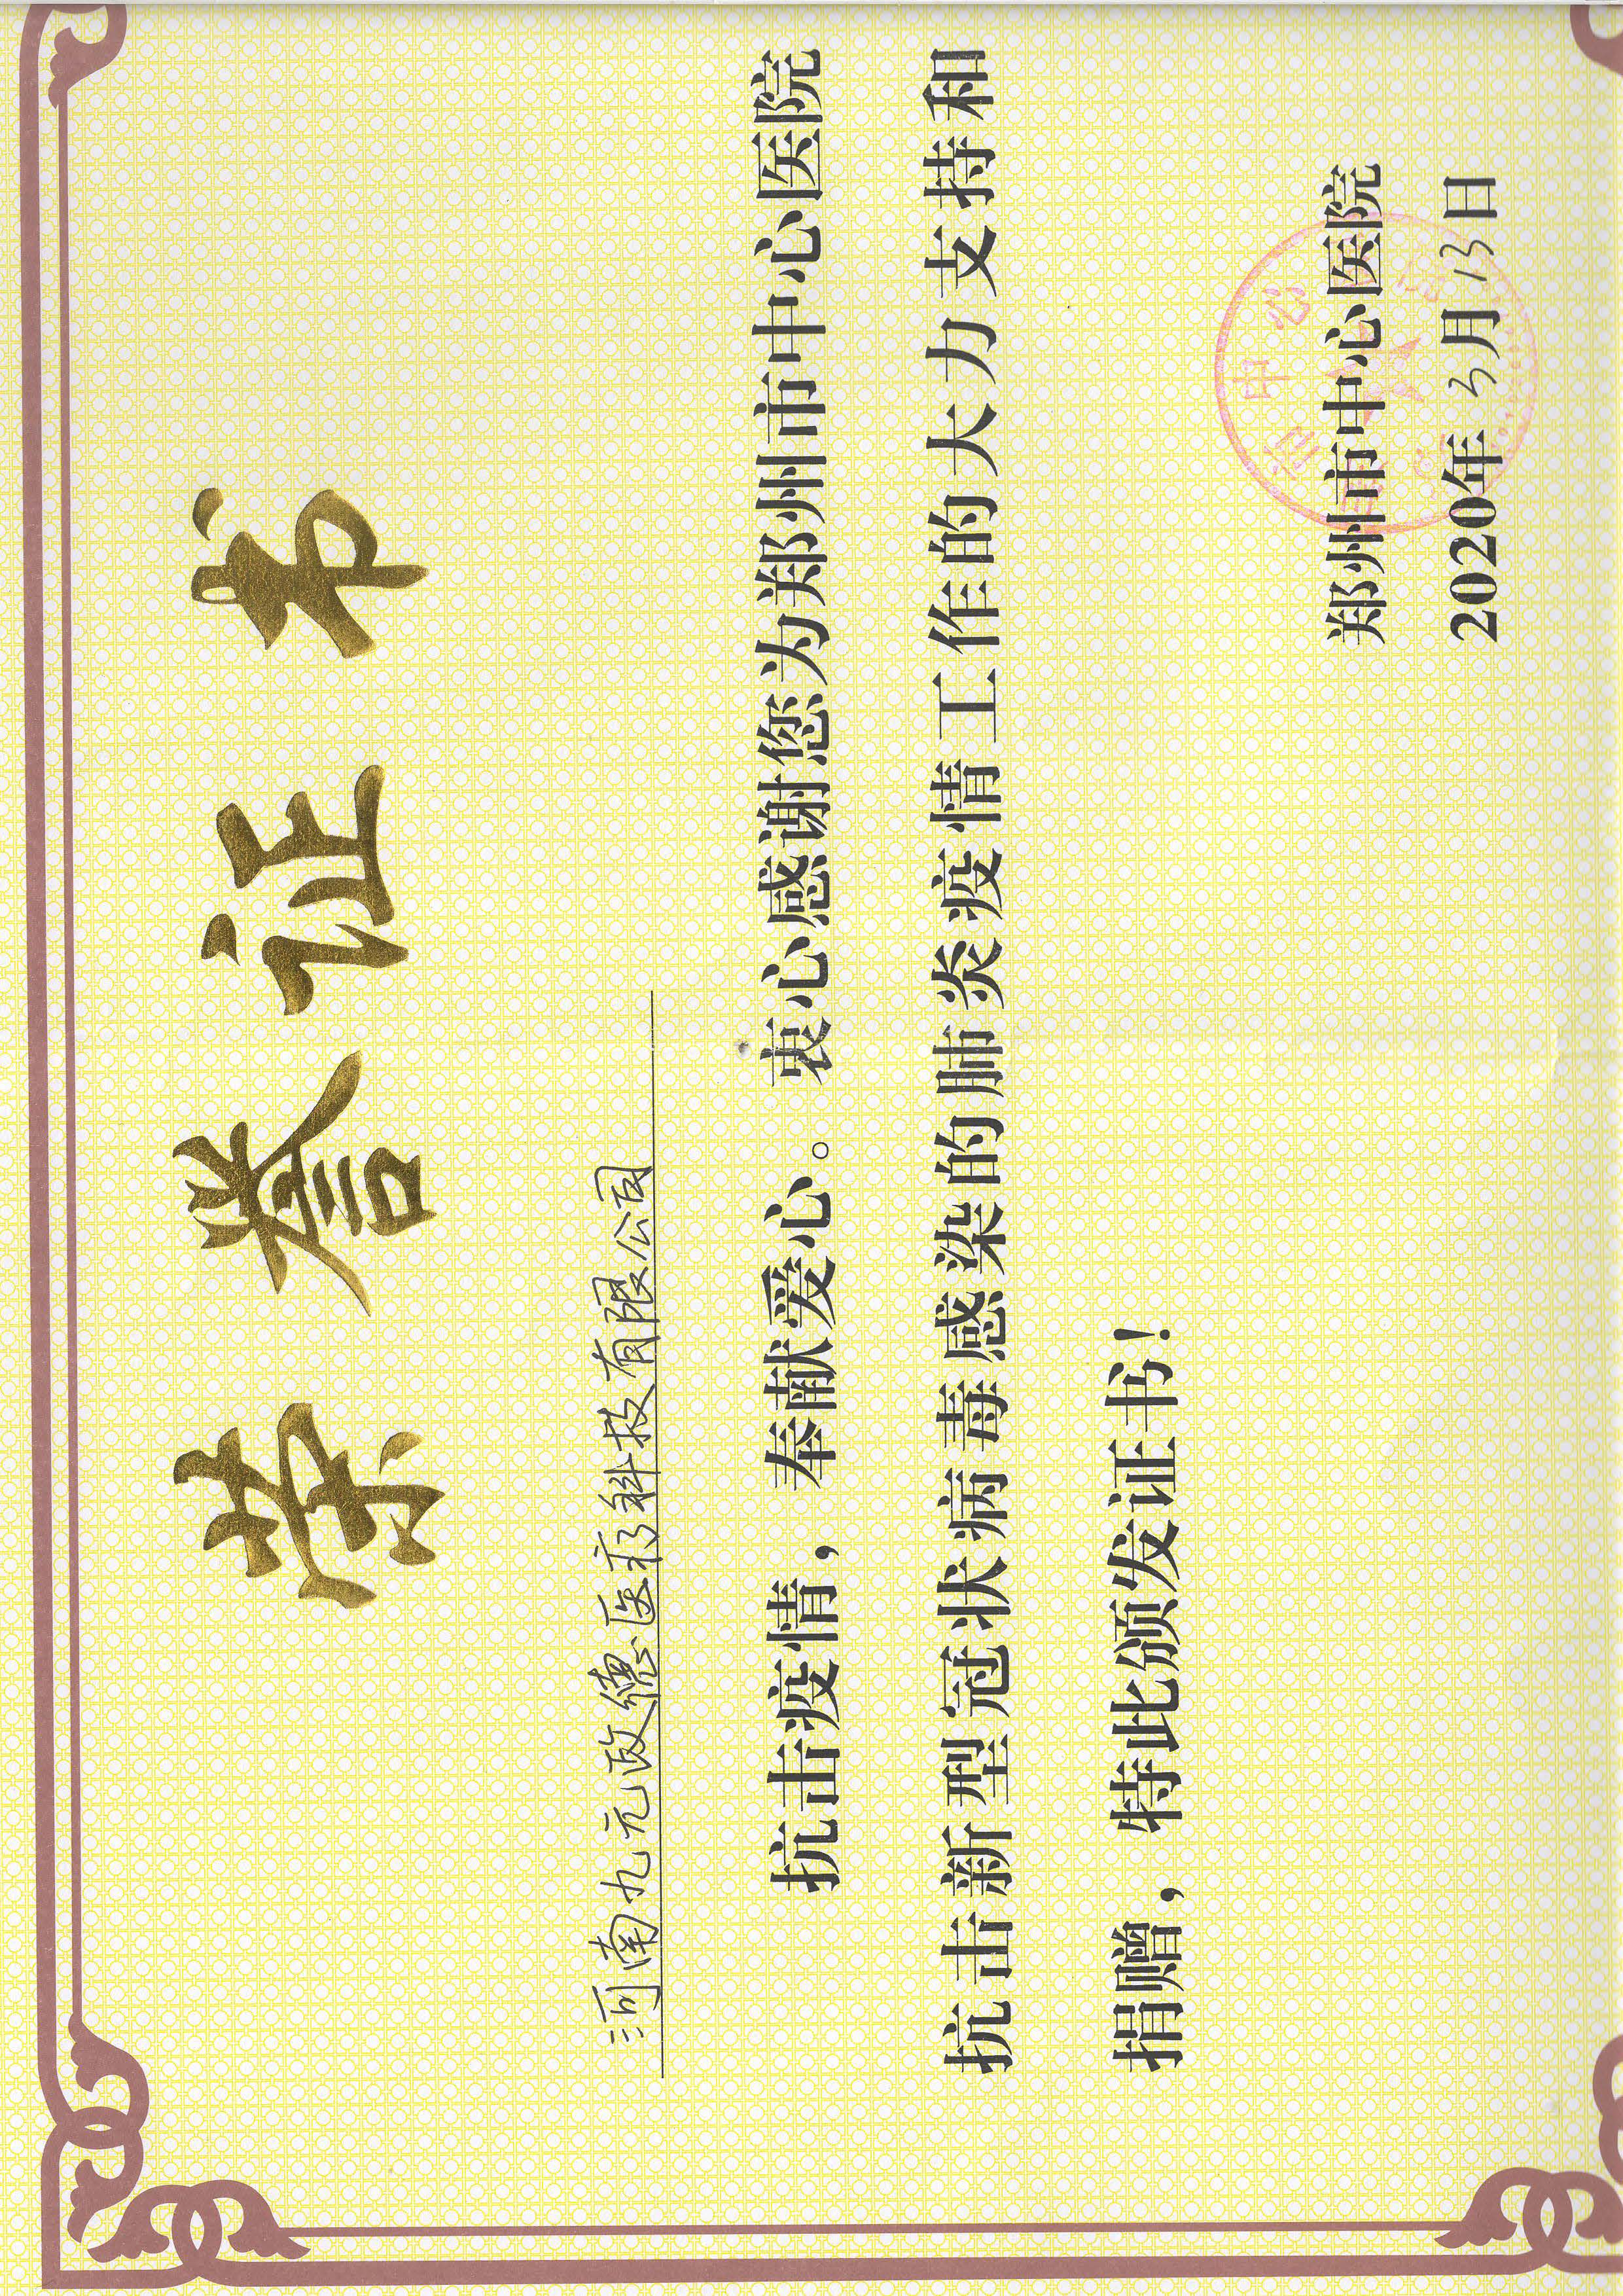 荣誉证书
河南九元政德医疗科技有限公司
抗击疫情，奉献爱心。衷心感谢您为郑州市中心医院
抗击新型冠状病毒感染的肺炎疫情工作的大力支持和
捐赠，特此颁发证书！
郑州市中心医院
2020年3月13日